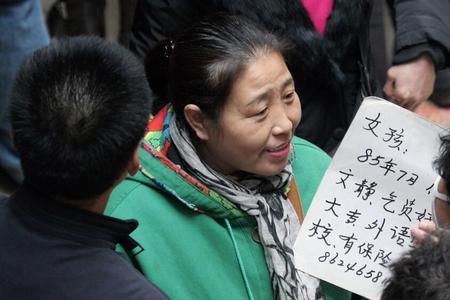 女孩:
85年7月
文静,气质好
大专,外语
校,有保险
8624658